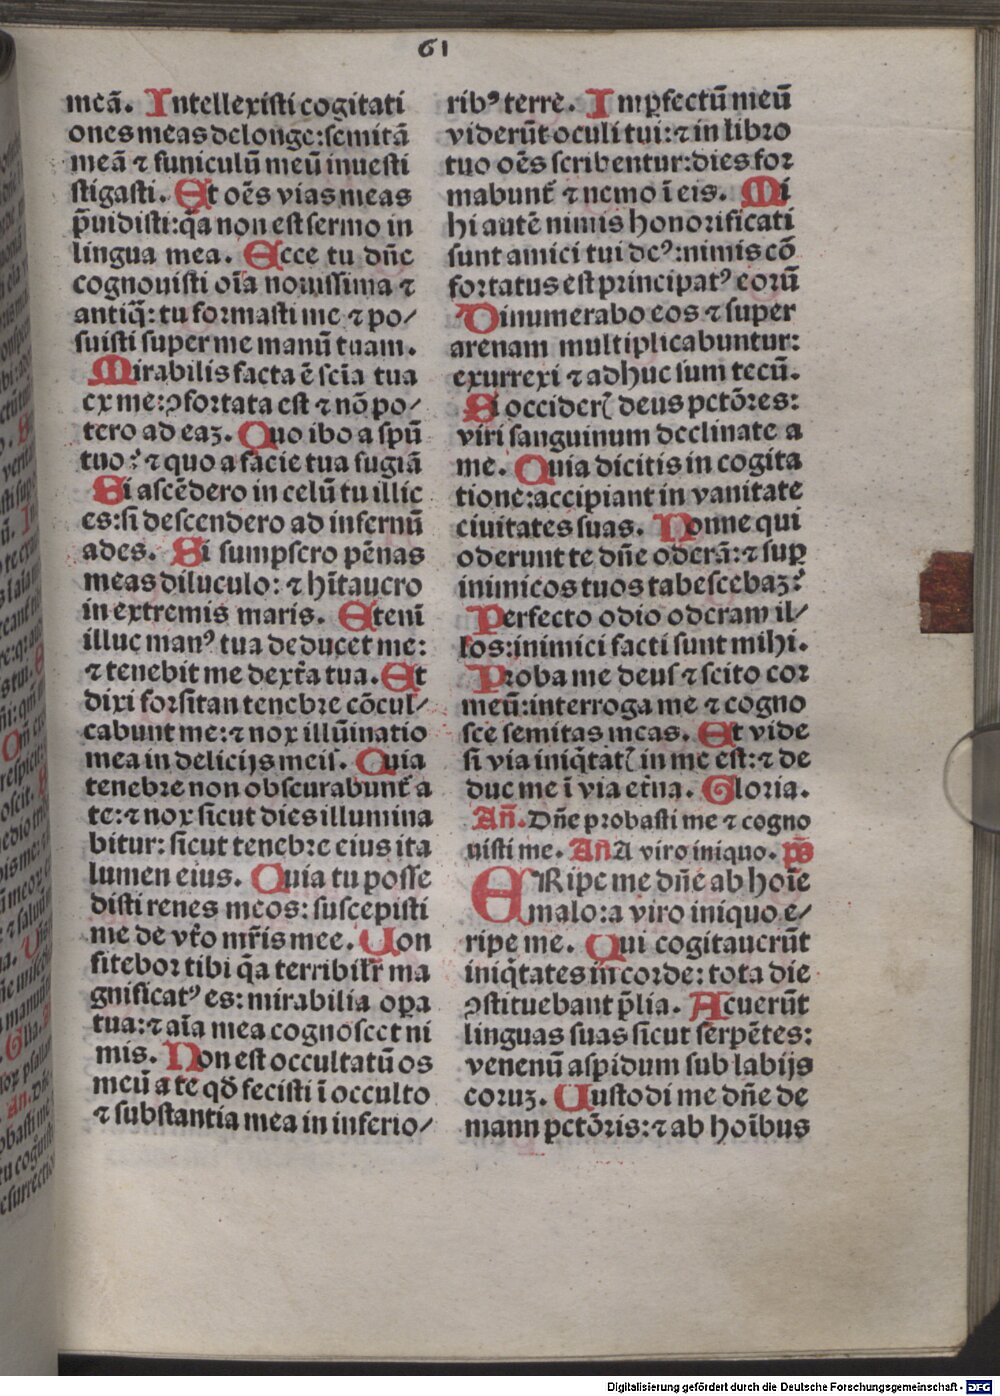 61
meā. Intellexisti cogitati
ones meas de longe: semitā
meā ⁊ funiculū meū inuesti
stigasti. Et oēs vias meas
p̄uidisti: q̄a non est sermo in
lingua mea. Ecce tu dn̄e
cognouisti oīa nouissima ⁊
antiq̄: tu formasti me ⁊ po/
suisti super me manū tuam.
Mirabilis facta ē scīa tua
ex me: ꝯfortata est ⁊ nō po/
tero ad eaꝫ. Quo ibo a spū
tuo: ⁊ quo a facie tua fugiā
Si ascēdero in celū tu illic
es: si descendero ad infernū
ades. Si sumpsero pēnas
meas diluculo: ⁊ hītauero
in extremis maris. Etenī
illuc manꝰ tua deducet me:
⁊ tenebit me dext̄a tua. Et
dixi forsitan tenebre cōcul/
cabunt me: ⁊ nox illūinatio
mea in delicijs meis. Quia
tenebre non obscurabunt̄ a
te: ⁊ nox sicut dies illumina
bitur: sicut tenebre eius ita
lumen eius. Quia tu posse
disti renes meos: suscepisti
me de vt̄o mr̄is mee. Con
fitebor tibi q̄a terribilr̄ ma
gnificatꝰ es: mirabilia oꝑa
tua: ⁊ aīa mea cognoscet ni
mis. Non est occultatū os
meū a te qd̄ fecisti ī occulto
⁊ substantia mea in inferio/
ribꝰ terre. Imꝑfectū meū
viderūt oculi tui: ⁊ in libro
tuo oēs scribentur: dies for
mabunt̄ ⁊ nemo ī eis. Mi
hi autē nimis honorificati
sunt amici tui deꝰ: nimis cō
fortatus est principatꝰ eorū
Dinumerabo eos ⁊ super
arenam multiplicabuntur:
exurrexi ⁊ adhuc sum tecū.
Si occiderꝭ deus pctōres:
viri sanguinum declinate a
me. Quia dicitis in cogita
tione: accipiant in vanitate
ciuitates suas. Nonne qui
oderunt te dn̄e oderā: ⁊ suꝑ
inimicos tuos tabescebaꝫ:
Perfecto odio oderam il/
los: inimici facti sunt mihi.
Proba me deus ⁊ scito cor
meū: interroga me ⁊ cogno
sce semitas meas. Et vide
si via iniq̄tatꝭ in me est: ⁊ de
duc me ī via et̄na. Gloria.
An̄. Dn̄e probasti me ⁊ cogno
uisti me. An̄ A viro iniquo. ps̄
ERipe me dn̄e ab hoīe
malo: a viro iniquo e/
ripe me. Qui cogitauerūt
iniq̄tates in corde: tota die
ꝯstituebant p̄lia. Acuerūt
linguas suas sicut serpētes:
venenū aspidum sub labijs
eoruꝫ. Custodi me dn̄e de
mann pctōris: ⁊ ab hoībus
Digitalisierung gefördert durch die Deutsche Forschungsgemeinschaft - DFG